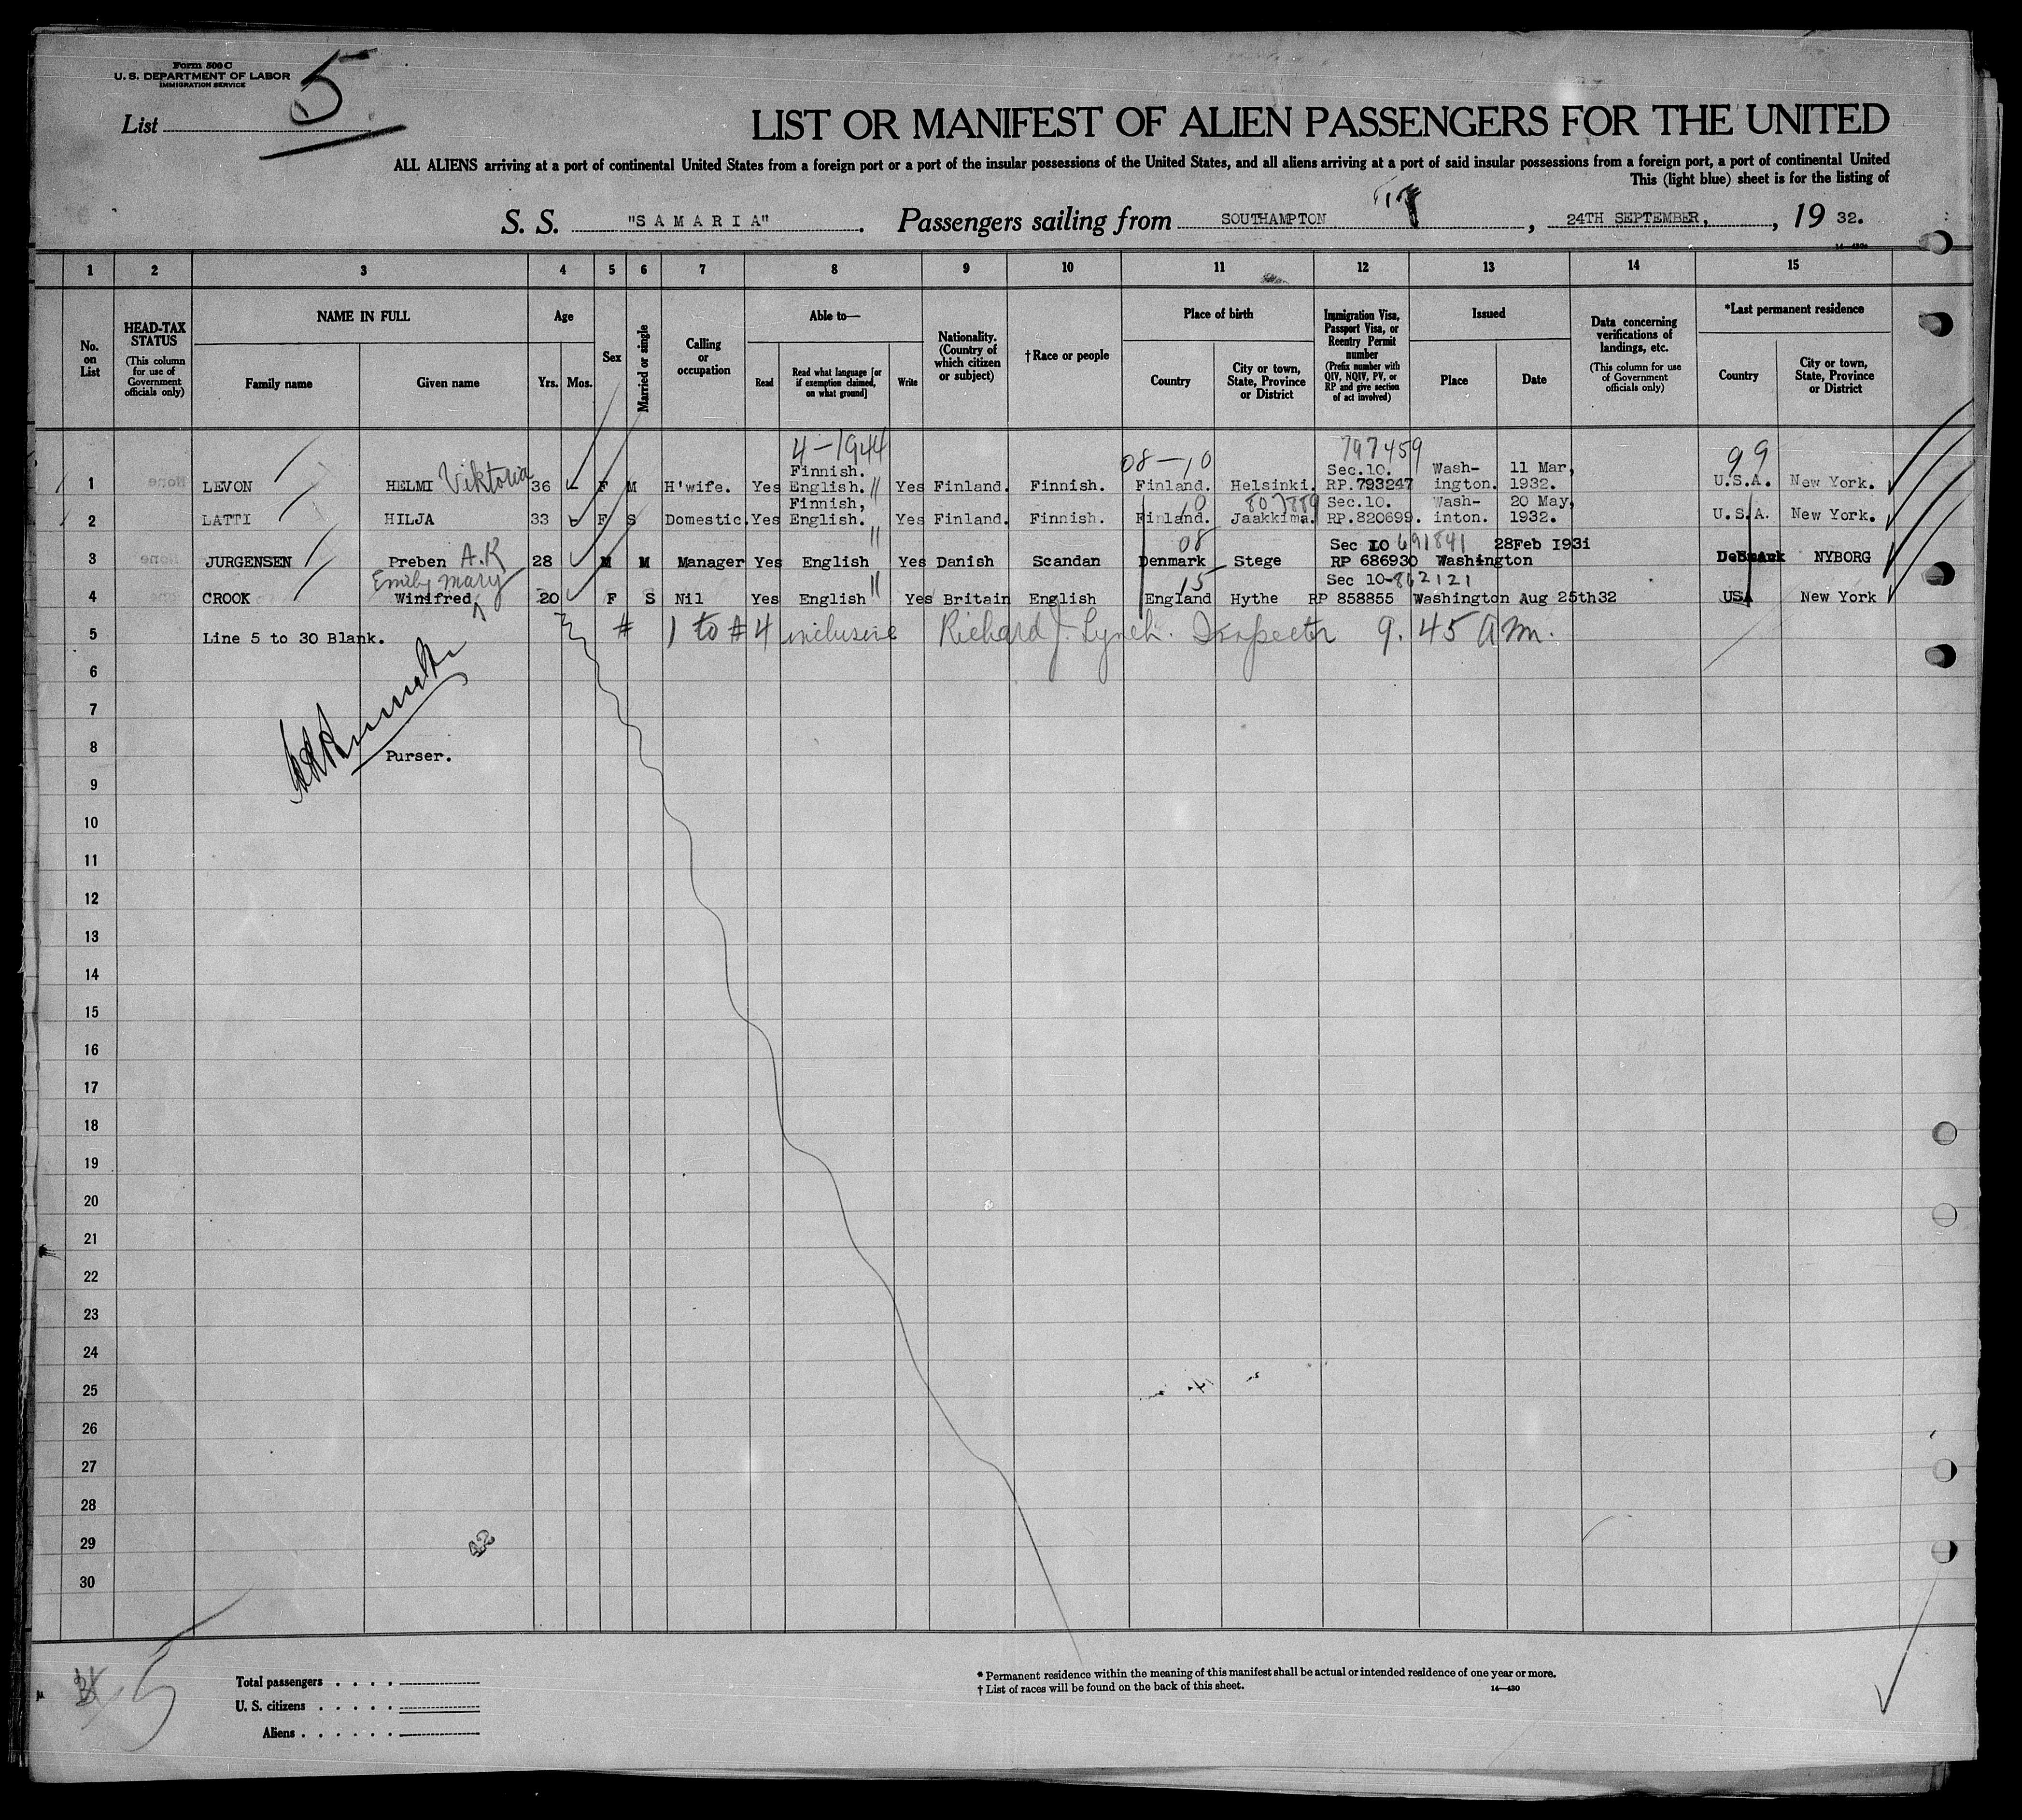 Form 500 C
U. S. DEPARTMENT OF LABOR
IMMIGRATION SERVICE
List 5
LIST OR MANIFEST OF ALIEN PASSENGERS FOR THE UNITED
ALL ALIENS arriving at a port of continental United States from a foreign port or a port of the insular possessions of the United States, and all aliens arriving at a port of said insular possessions from a foreign port, a port of continental United
This (light blue) sheet is for the listing of
S. S. "SAMARIA". Passengers sailing from SOUTHAMPTON, 24TH SEPTEMBER, , 19 32.
14-430a
1 2 3 4 5 6 7 8 9 10 11 12 13 14 15
No. on List
HEAD-TAX STATUS (This column for use of Government officials only)
NAME IN FULL
Family name Given name
Age
Yrs. Mos.
Sex
Married or single
Calling or occupation
Able to—
Read Read what language [or if exemption claimed, on what ground] Write
Nationality. (Country of which citizen or subject)
†Race or people
Place of birth
Country City or town, State, Province or District
Immigration Visa, Passport Visa, or Reentry Permit number (Prefix number with QIV, NQIV, PV, or RP and give section of act involved)
Issued
Place Date
Data concerning verifications of landings, etc. (This column for use of Government officials only)
*Last permanent residence
Country City or town, State, Province or District
4-1944 08-10 797459 99
Finnish. Sec.10. Wash- 11 Mar,
1 LEVON HELMI Viktoria 36 F M H'wife. Yes English. Yes Finland. Finnish. Finland. Helsinki. RP.793247 ington. 1932. U.S.A. New York.
Finnish, 10 807889 Sec.10. Wash- 20 May,
2 LATTI HILJA 33 F S Domestic. Yes English. Yes Finland. Finnish. Finland. Jaakkima. RP.820699. inton. 1932. U.S.A. New York.
08 Sec 10 691841 28Feb 1931
3 JURGENSEN Preben A.K 28 M M Manager Yes English Yes Danish Scandan Denmark Stege RP 686930 Washington Denmark NYBORG
Emily Mary 15 Sec 10-862121
4 CROOK Winifred 20 F S Nil Yes English Yes Britain English England Hythe RP 858855 Washington Aug 25th32 USA New York
5 Line 5 to 30 Blank. # 1 to #4 inclusive Richard J. Lynch. Inspector 9.45 A m.
6
7
8 Purser.
9
10
11
12
13
14
15
16
17
18
19
20
21
22
23
24
25
26
27
28
29
30
5
Total passengers
U. S. citizens
Aliens
* Permanent residence within the meaning of this manifest shall be actual or intended residence of one year or more.
† List of races will be found on the back of this sheet.
14-430